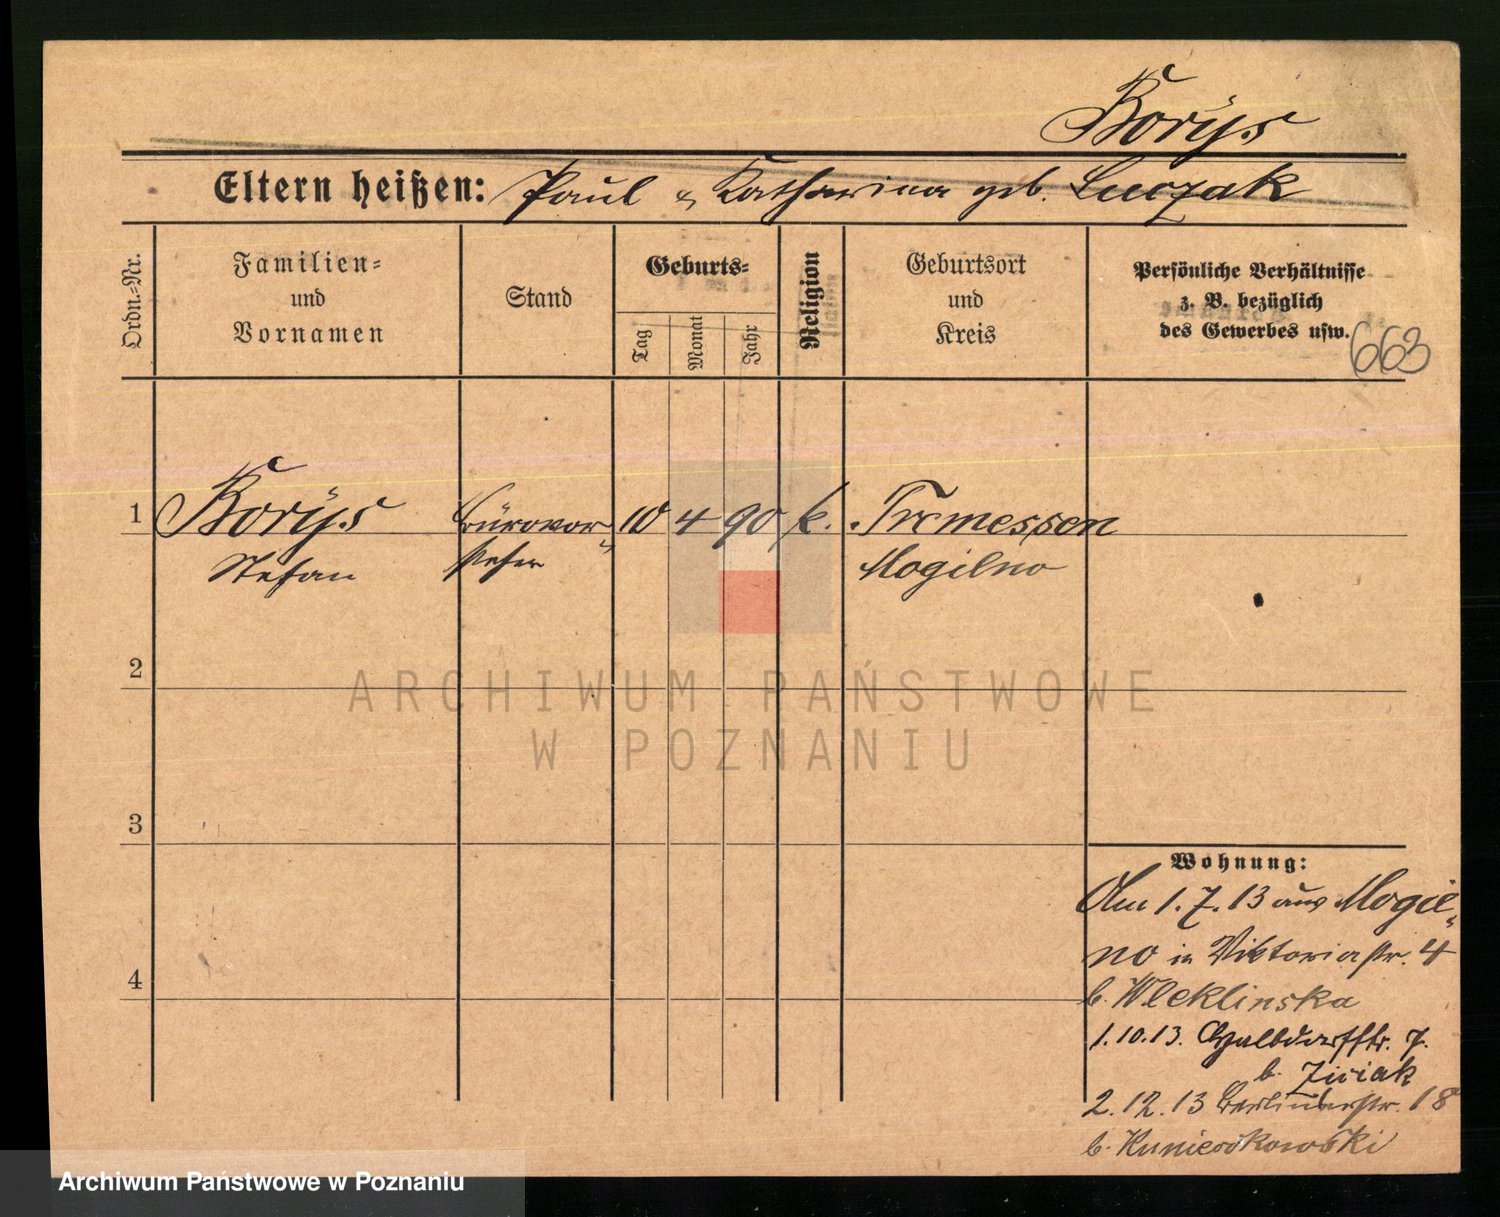 Borys
Eltern heißen: Paul & Katharina geb. Luczak
Ordn.-Nr.
Familien-
und
Vornamen
Stand
Geburts-
Tag
Monat
Jahr
Religion
Geburtsort
und
Kreis
Persönliche Verhältnisse
z. B. bezüglich
des Gewerbes usw.
663
1 Borys Bürovor- 10 4 90 k. Tremessen
Stefan steher Mogilno
2
ARCHIWUM PAŃSTWOWE
W POZNANIU
3
Wohnung:
Am 1.7.13 aus Mogil-
no in Viktoriastr. 4
b. Wleklinska
4
1.10.13. Halbdorfstr. 7.
b.
2.12.13 Berlinerstr. 18
b.
Archiwum Państwowe w Poznaniu